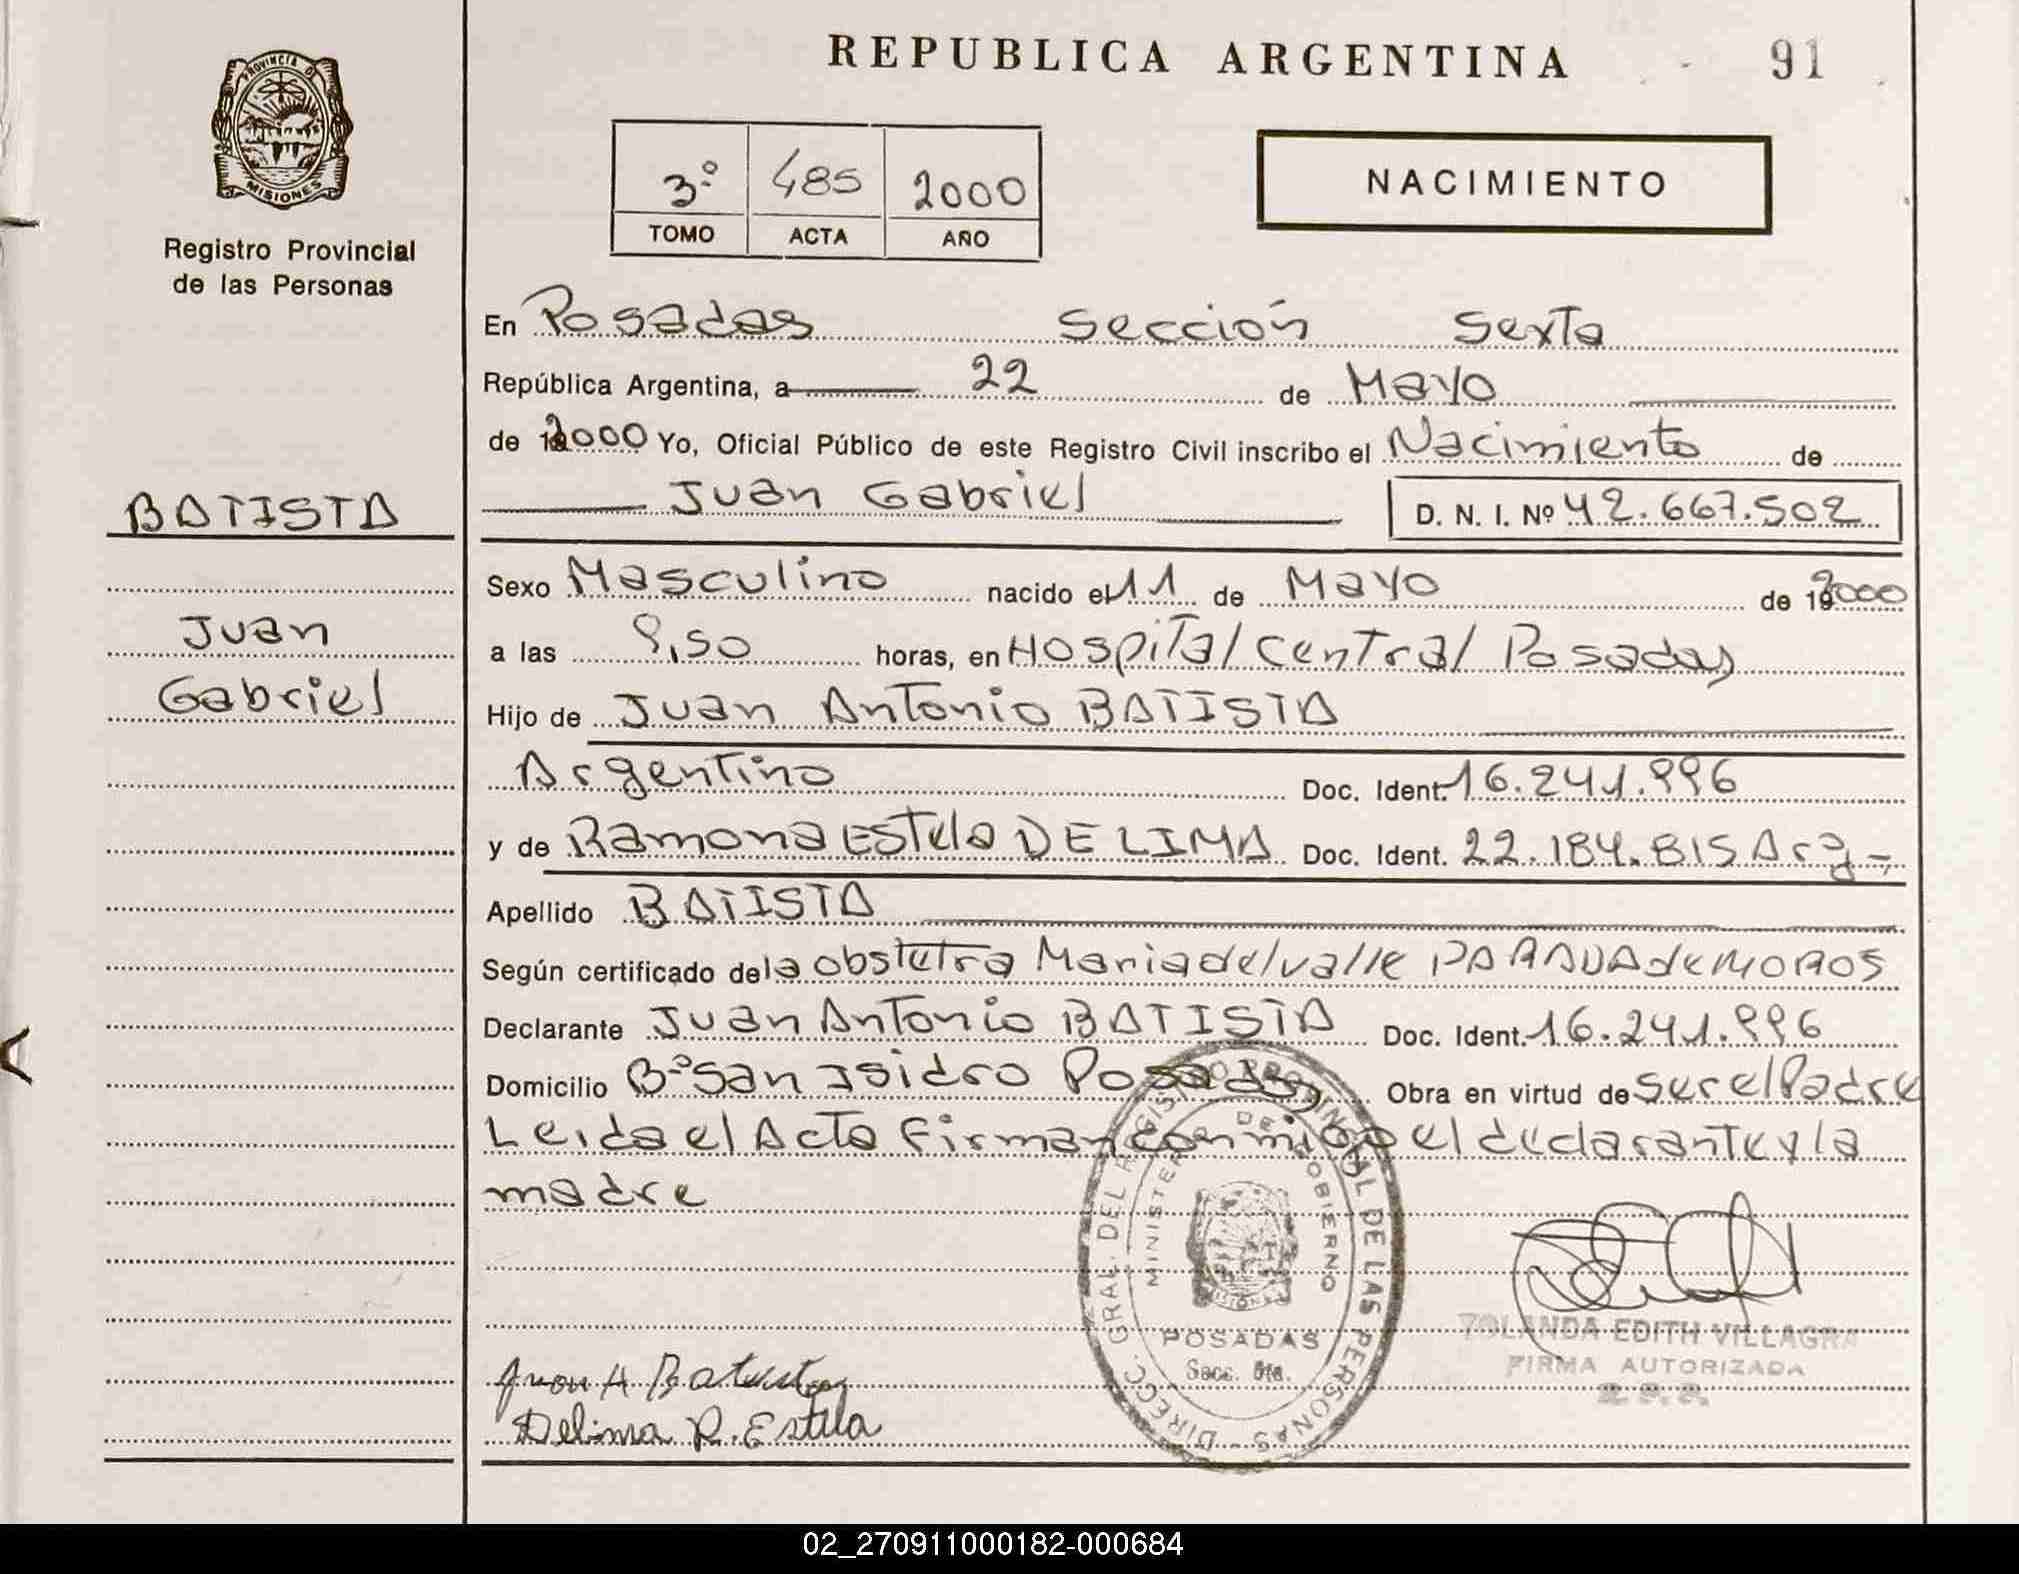 REPUBLICA ARGENTINA
91
PROVINCIA DE
MISIONES
Registro Provincial
de las Personas
3º 485 2000
TOMO ACTA AÑO
NACIMIENTO
En Posadas Sección Sexta
República Argentina, a 22 de Mayo
de 2000 Yo, Oficial Público de este Registro Civil inscribo el Nacimiento de
Juan Gabriel
D. N. I. Nº 42.667.502
BATISTA
Juan
Gabriel
Sexo Masculino nacido el 11 de Mayo de 2000
a las horas, en Hospital Central Posadas
Hijo de Juan Antonio BATISTA
Argentino Doc. Ident. 16.241.996
y de Ramona Estela DE LIMA Doc. Ident. 22.184.815 Arg-
Apellido BATISTA
Según certificado de la obstetra Maria del valle de MOROS
Declarante Juan Antonio BATISTA Doc. Ident. 16.241.996
Domicilio Bº San Isidro Posadas, Obra en virtud de ser el Padre
Leida el Acta Firman conmigo el declarante y la
madre
DIRECC. GRAL. DEL REGISTRO PROVINCIAL DE LAS PERSONAS
MINISTERIO DE GOBIERNO
POSADAS
Secc. 6ta.
YOLANDA EDITH VILLAGRA
FIRMA AUTORIZADA
Juan A Batista
Delima R. Estela
02_270911000182-000684